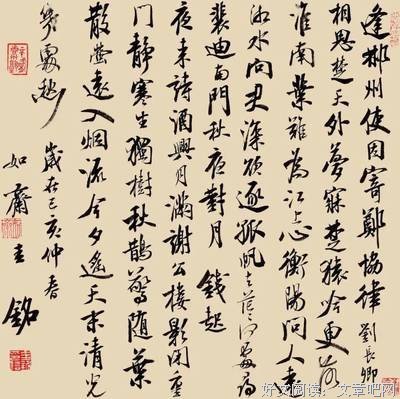 逢郴州使因寄鄭協律 劉長卿
相思楚天外夢寐楚猿吟更落
淮南葉難為江上心衡陽問人遠
湘水向君深欲逐孤帆去茫茫何處尋
裴迪南門秋夜對月 錢起
夜來詩酒興月滿謝公樓影閉重
門靜寒生獨樹秋鵲驚隨葉
散螢遠入烟流今夕遙天末清光
幾處愁 歲在己亥仲春
如齋主 銘
好文阅读：文章吧网